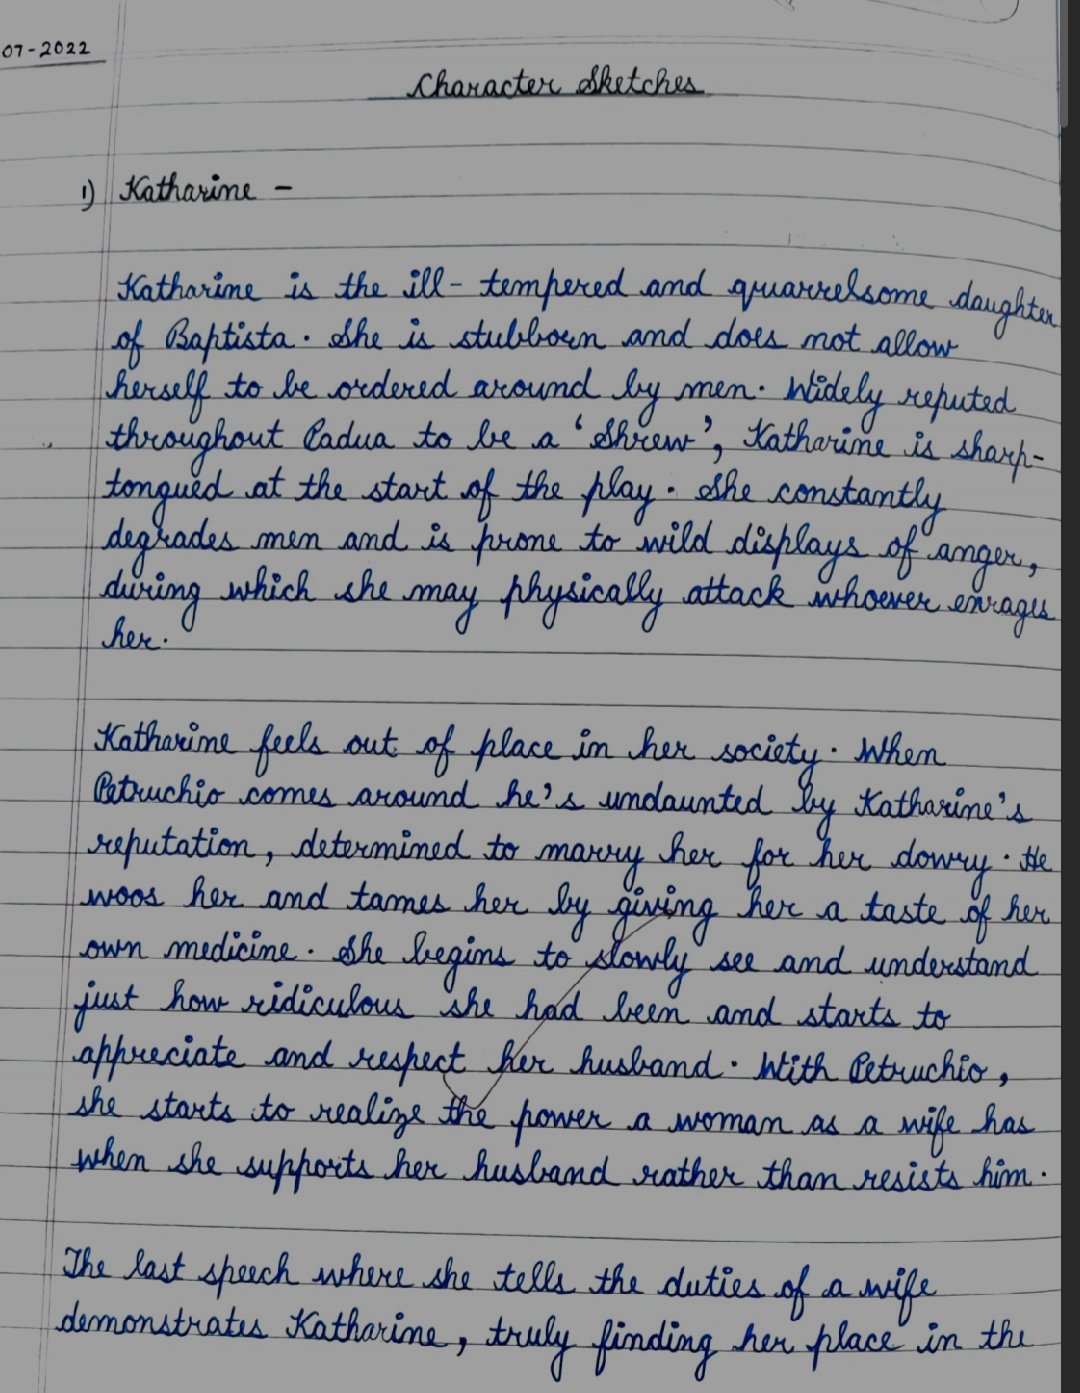 07-2022
Character Sketches
1) Katharine -
Katharine is the ill-tempered and quarrelsome daughter
of Baptista. She is stubborn and does not allow
herself to be ordered around by men. Widely reputed
throughout Padua to be a 'Shrew', Katharine is sharp-
tongued at the start of the play. She constantly
degrades men and is prone to wild displays of anger,
during which she may physically attack whoever enrages
her.
Katharine feels out of place in her society. When
Petruchio comes around he's undaunted by Katharine's
reputation, determined to marry her for her dowry. He
woos her and tames her by giving her a taste of her
own medicine. She begins to slowly see and understand
just how ridiculous she had been and starts to
appreciate and respect her husband. With Petruchio,
she starts to realize the power a woman as a wife has
when she supports her husband rather than resists him.
The last speech where she tells the duties of a wife
demonstrates Katharine, truly finding her place in the